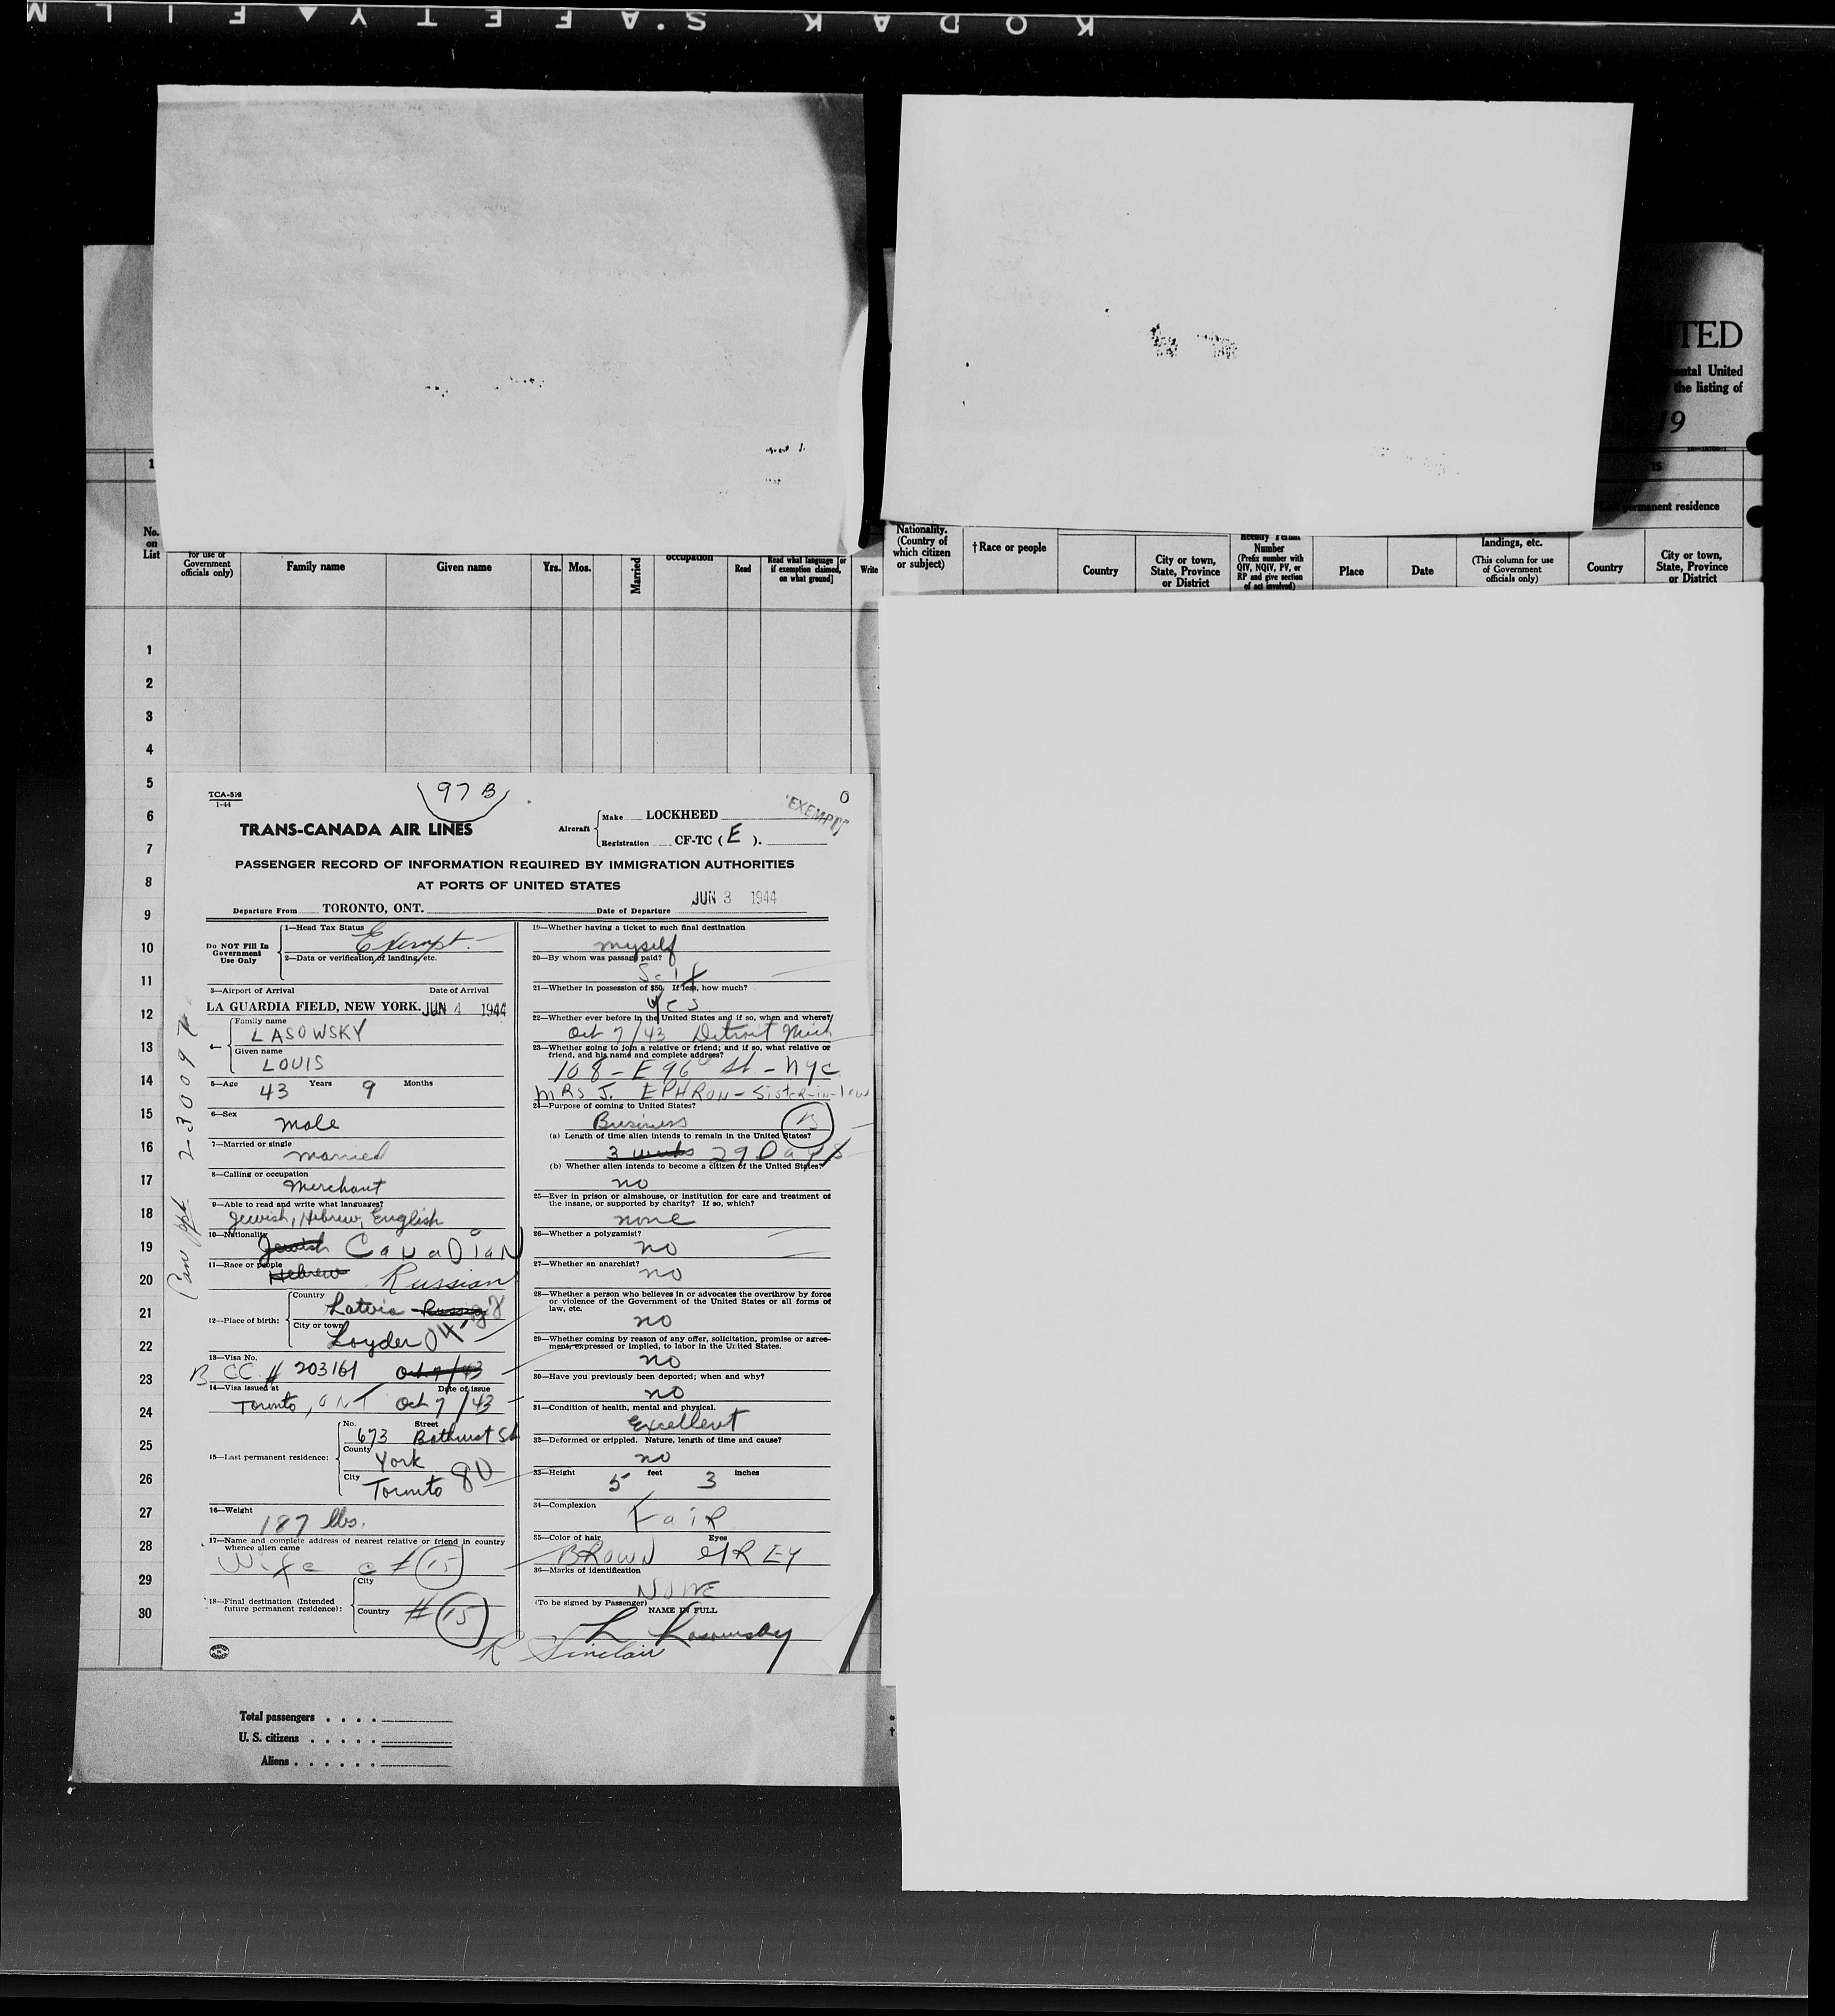 KODAK S'AFETY▲FILM
TED
ental United
the listing of
19
15
permanent residence
1
No.
on
List
for use of
Government
officials only)
Family name
Given name
Yrs. Mos.
Married
occupation
Read
Read what language [or
if exemption claimed,
on what ground]
Write
Nationality.
(Country of
which citizen
or subject)
†Race or people
Country
City or town,
State, Province
or District
Number
(Prefix number with
QIV, NQIV, PV, or
RP and give section
of act involved)
Place
Date
landings, etc.
(This column for use
of Government
officials only)
Country
City or town,
State, Province
or District
1
2
3
4
5
6
7
8
9
10
11
12
13
14
15
16
17
18
19
20
21
22
23
24
25
26
27
28
29
30
TCA-598
1-44
97 B
O
EXEMPT
TRANS-CANADA AIR LINES
Aircraft
Make LOCKHEED
Registration CF-TC ( E ).
PASSENGER RECORD OF INFORMATION REQUIRED BY IMMIGRATION AUTHORITIES
AT PORTS OF UNITED STATES
Departure From TORONTO, ONT. Date of Departure JUN 3 1944
Do NOT Fill In
Government
Use Only
1—Head Tax Status
Exempt.
2—Data or verification of landing, etc.
3—Airport of Arrival Date of Arrival
LA GUARDIA FIELD, NEW YORK. JUN 4 1944
4—
Family name
LASOWSKY
Given name
LOUIS
5—Age 43 Years 9 Months
6—Sex
Male
7—Married or single
Married
8—Calling or occupation
Merchant
9—Able to read and write what languages?
Jewish, Hebrew, English
10—Nationality
Jewish Canadian
11—Race or people
Hebrew Russian
12—Place of birth:
Country
Latvia Russia
City or town
Loyder
13—Visa No.
B CC # 203161 Oct 7/43
14—Visa issued at Date of issue
Toronto, ONT Oct 7/43
15—Last permanent residence:
No. Street
673 Bathurst St
County
York
City
Toronto 80
16—Weight
187 lbs.
17—Name and complete address of nearest relative or friend in country
whence alien came
Wife c # 15
18—Final destination (Intended
future permanent residence):
City
Country # 15
Can ppt 2-30097
19—Whether having a ticket to such final destination
myself
20—By whom was passage paid?
Self
21—Whether in possession of $50. If less, how much?
yes
22—Whether ever before in the United States and if so, when and where?
Oct 7/43 Detroit Mich
23—Whether going to join a relative or friend; and if so, what relative or
friend, and his name and complete address?
108 - E 96 St - NYC
MRS J. EPHRON - Sister-in-law
24—Purpose of coming to United States?
Business B
(a) Length of time alien intends to remain in the United States?
3 weeks 29 Days
(b) Whether alien intends to become a citizen of the United States?
no
25—Ever in prison or almshouse, or institution for care and treatment of
the insane, or supported by charity? If so, which?
none
26—Whether a polygamist?
no
27—Whether an anarchist?
no
28—Whether a person who believes in or advocates the overthrow by force
or violence of the Government of the United States or all forms of
law, etc.
no
29—Whether coming by reason of any offer, solicitation, promise or agree-
ment, expressed or implied, to labor in the United States.
no
30—Have you previously been deported; when and why?
no
31—Condition of health, mental and physical.
Excellent
32—Deformed or crippled. Nature, length of time and cause?
no
33—Height 5 feet 3 inches
34—Complexion
FaiR
35—Color of hair Eyes
BROWN GREY
36—Marks of identification
NONE
(To be signed by Passenger)
NAME IN FULL
R Sinclair
Total passengers . . . .
U. S. citizens . . . . .
Aliens . . . . . .
*
†